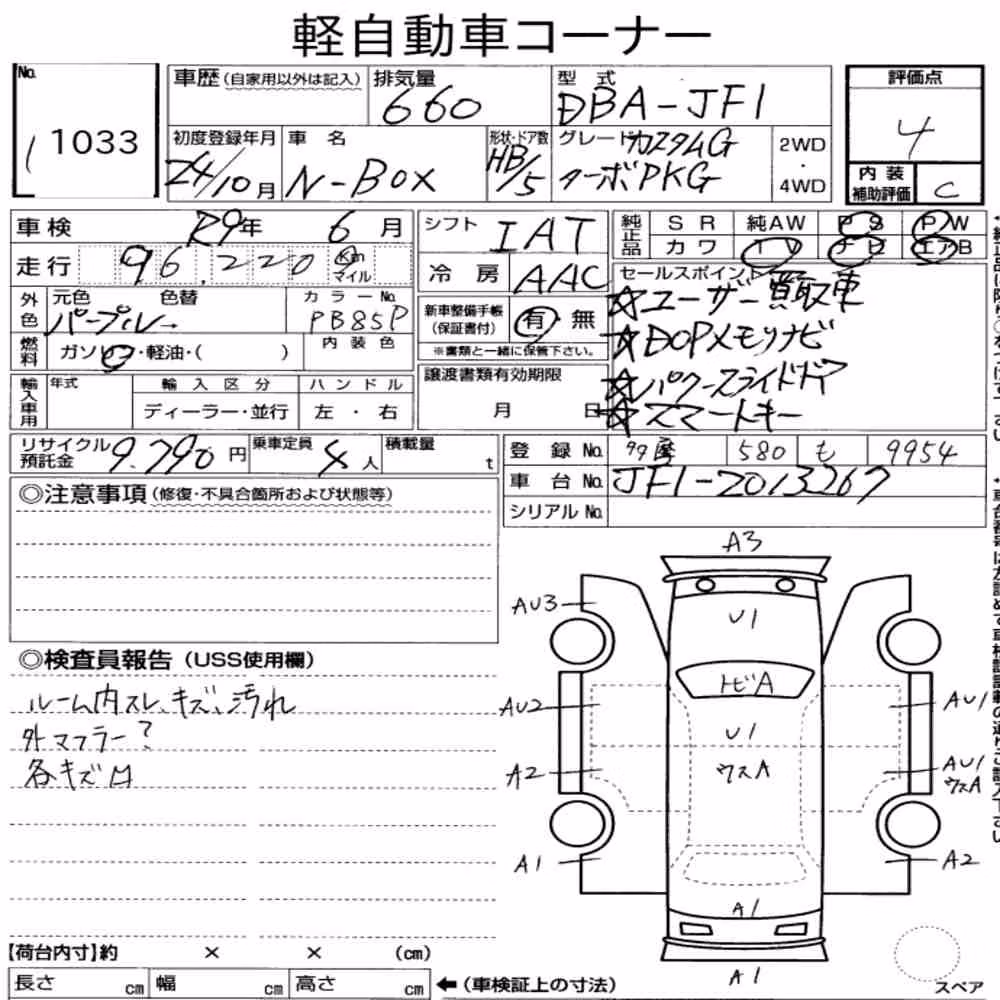 軽自動車コーナー
No. 1033
車歴(自家用以外は記入) 排気量 660 型式 DBA-JF1
初度登録年月 24/10月 車名 N-BOX 形状・ドア数 HB/5 グレード カスタムG ターボPKG 2WD・4WD
評価点 4
内装補助評価 C
車検 R9年 6月
走行 96,220 Km マイル
外色 元色 色替 パープル→ カラーNo. PB85P
燃料 ガソリン・軽油・( ) 内装色
輸入車用 年式 輸入区分 ディーラー・並行 ハンドル 左・右
シフト IAT
冷房 AAC
新車整備手帳(保証書付) 有 無
※書類と一緒に保管下さい。
譲渡書類有効期限
月 日
純正品 SR 純AW PS PW
カワ TV ナビ エアB
セールスポイント
☆ユーザー買取車
☆DOPメモリナビ
☆パワースライドドア
☆スマートキー
リサイクル預託金 9,790円 乗車定員 4人 積載量 t
登録No. 580 も 9954
車台No. JF1-2013267
シリアルNo.
◎注意事項(修復・不具合箇所および状態等)
◎検査員報告(USS使用欄)
ルーム内スレ、キズ、汚れ
外マフラー?
各キズ凹
A3
AU3
U1
トビA
AU2
U1
AU1
A2
ウスA
AU1
ウスA
A1
A2
A1
A1
スペア
【荷台内寸】約 × × (cm)
長さ cm 幅 cm 高さ cm ←(車検証上の寸法)